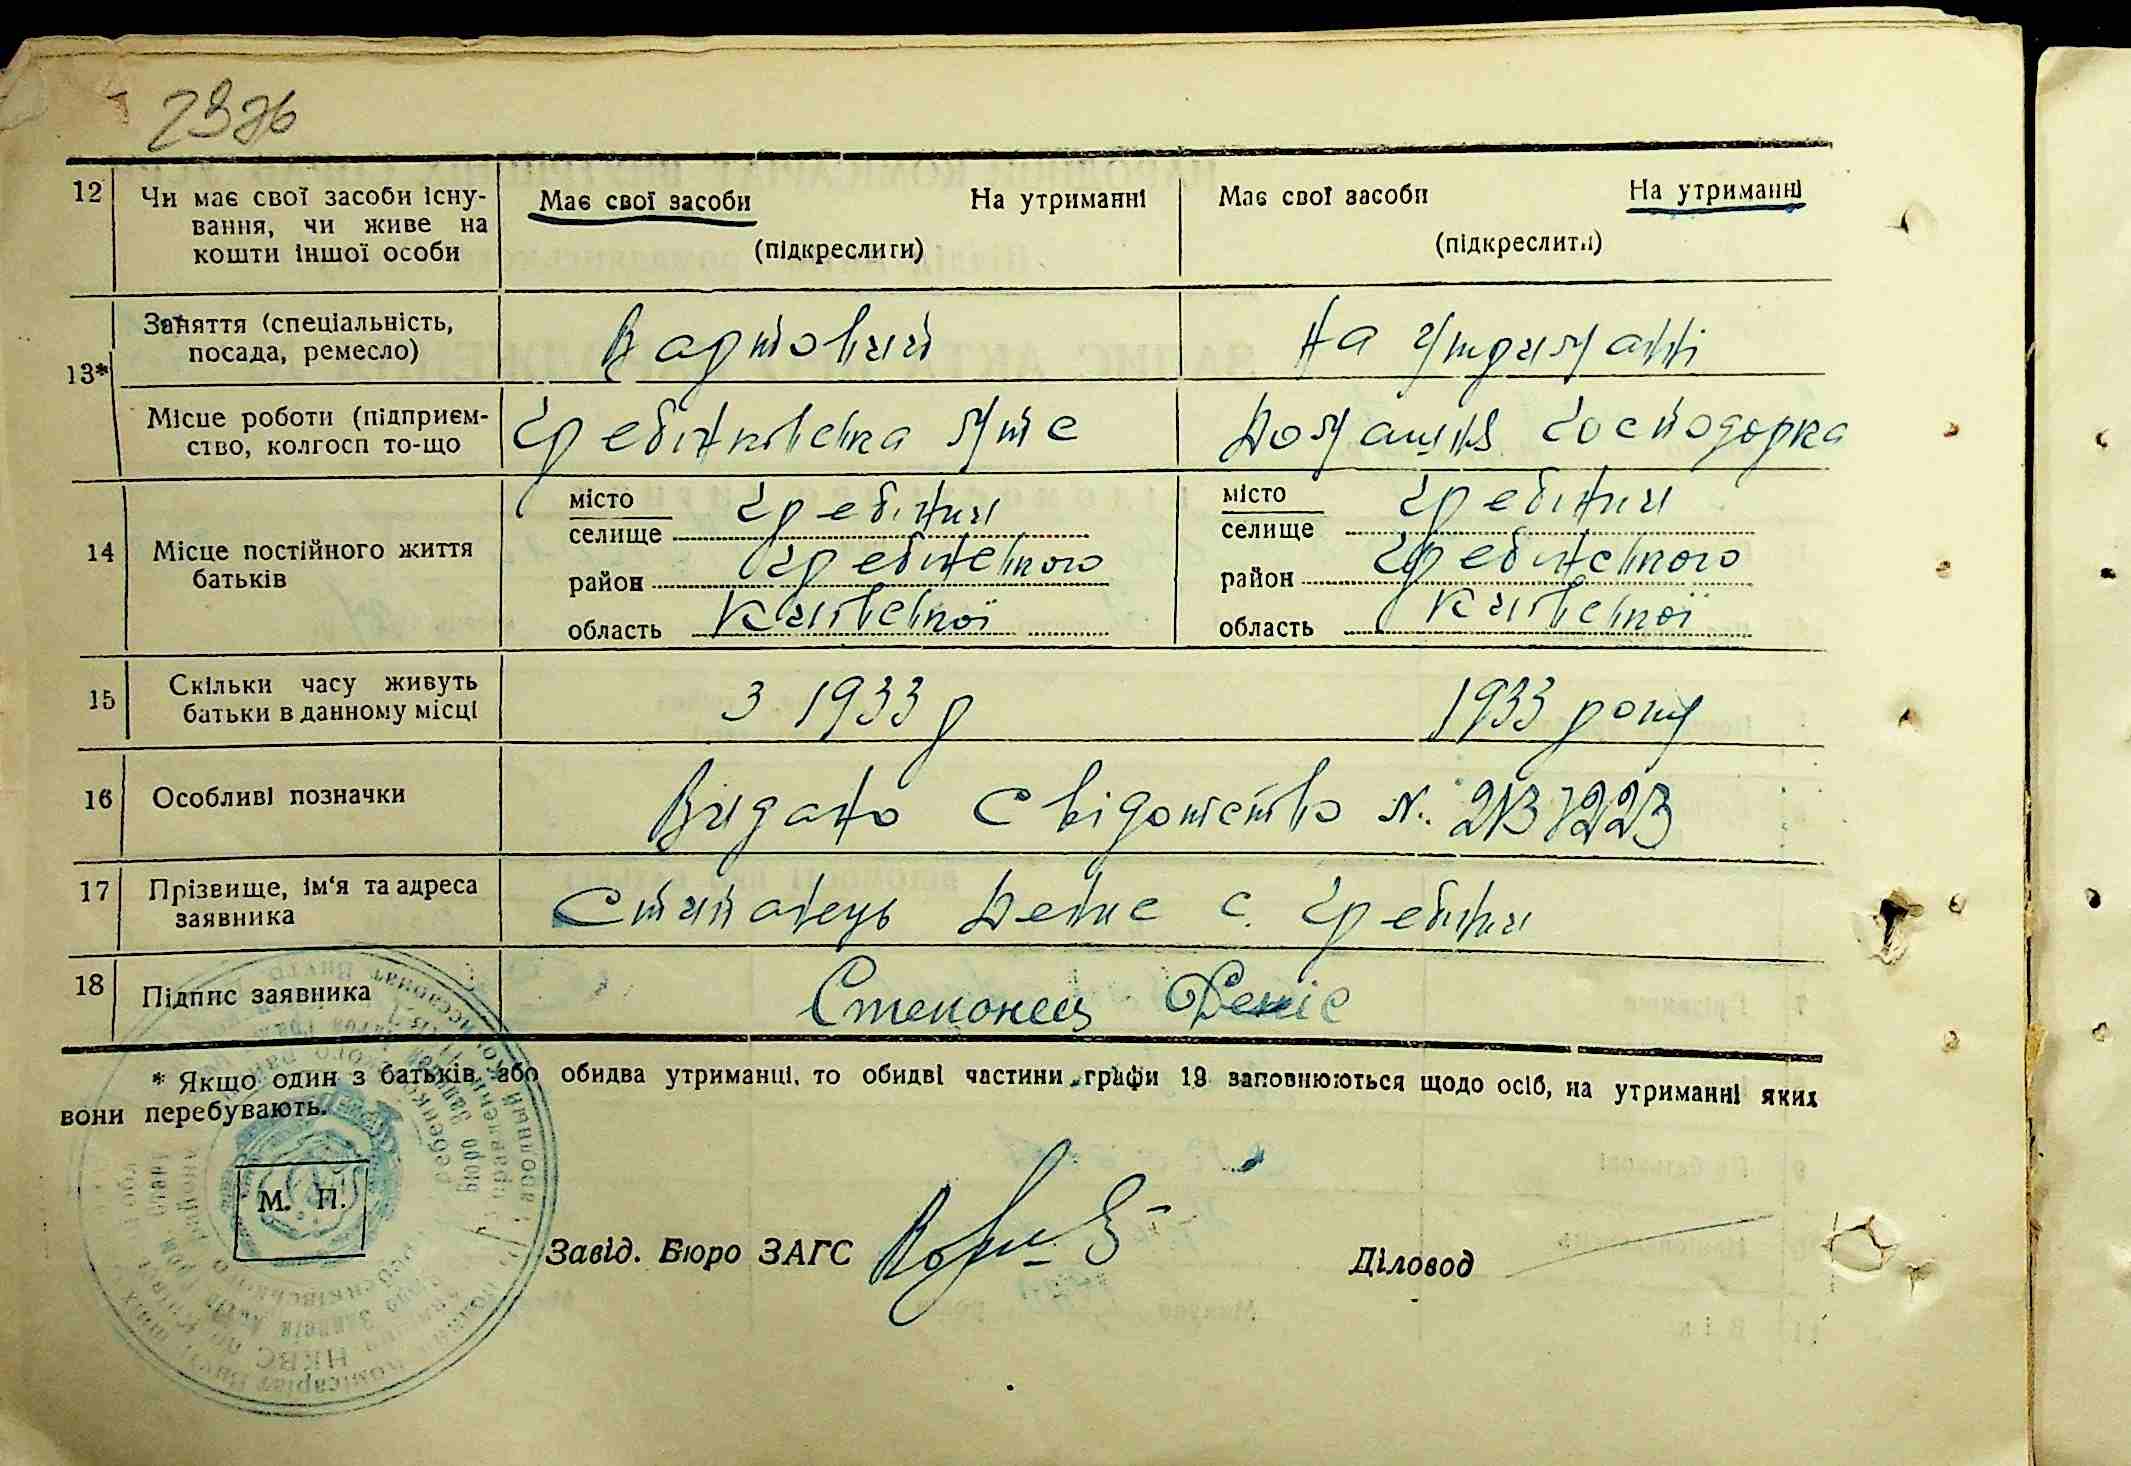 12 Чи має свої засоби існу- Має свої засоби На утриманні Має свої засоби На утриманні
вання, чи живе на
кошти іншої особи (підкреслити) (підкреслити)
13* Заняття (спеціальність, Вартовий На утриманні
посада, ремесло)
Місце роботи (підприєм- Гребінківська мтс Домашня господорка
ство, колгосп то-що
14 Місце постійного життя місто Гребінки місто Гребінки
батьків селище селище
район Гребінського район Гребінського
область Київської область Київської
15 Скільки часу живуть З 1933 р 1933 року
батьки в данному місці
16 Особливі позначки Видано Свідотство №
17 Прізвище, ім'я та адреса Стипанець Денис с. Гребінки
заявника
18 Підпис заявника Степонец Деніс
* Якщо один з батьків, або обидва утриманці, то обидві частини графи 13 заповнюються щодо осіб, на утриманні яких
вони перебувають.
М. П.
Завід. Бюро ЗАГС Діловод